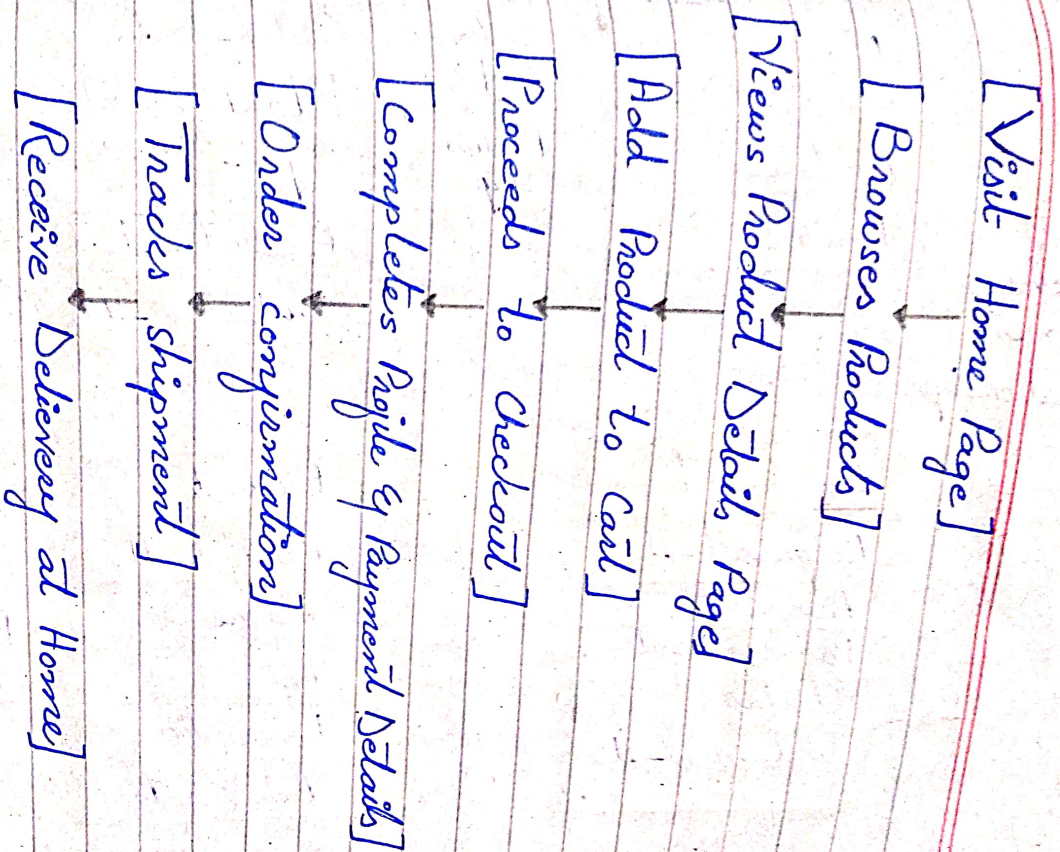 [Visit Home Page]
[Browses Products]
[Views Product Details Page]
[Add Product to Cart]
[Proceeds to Checkout]
[Completes Profile & Payment Details]
[Order confirmation]
[Tracks shipment]
[Receive Delievery at Home]